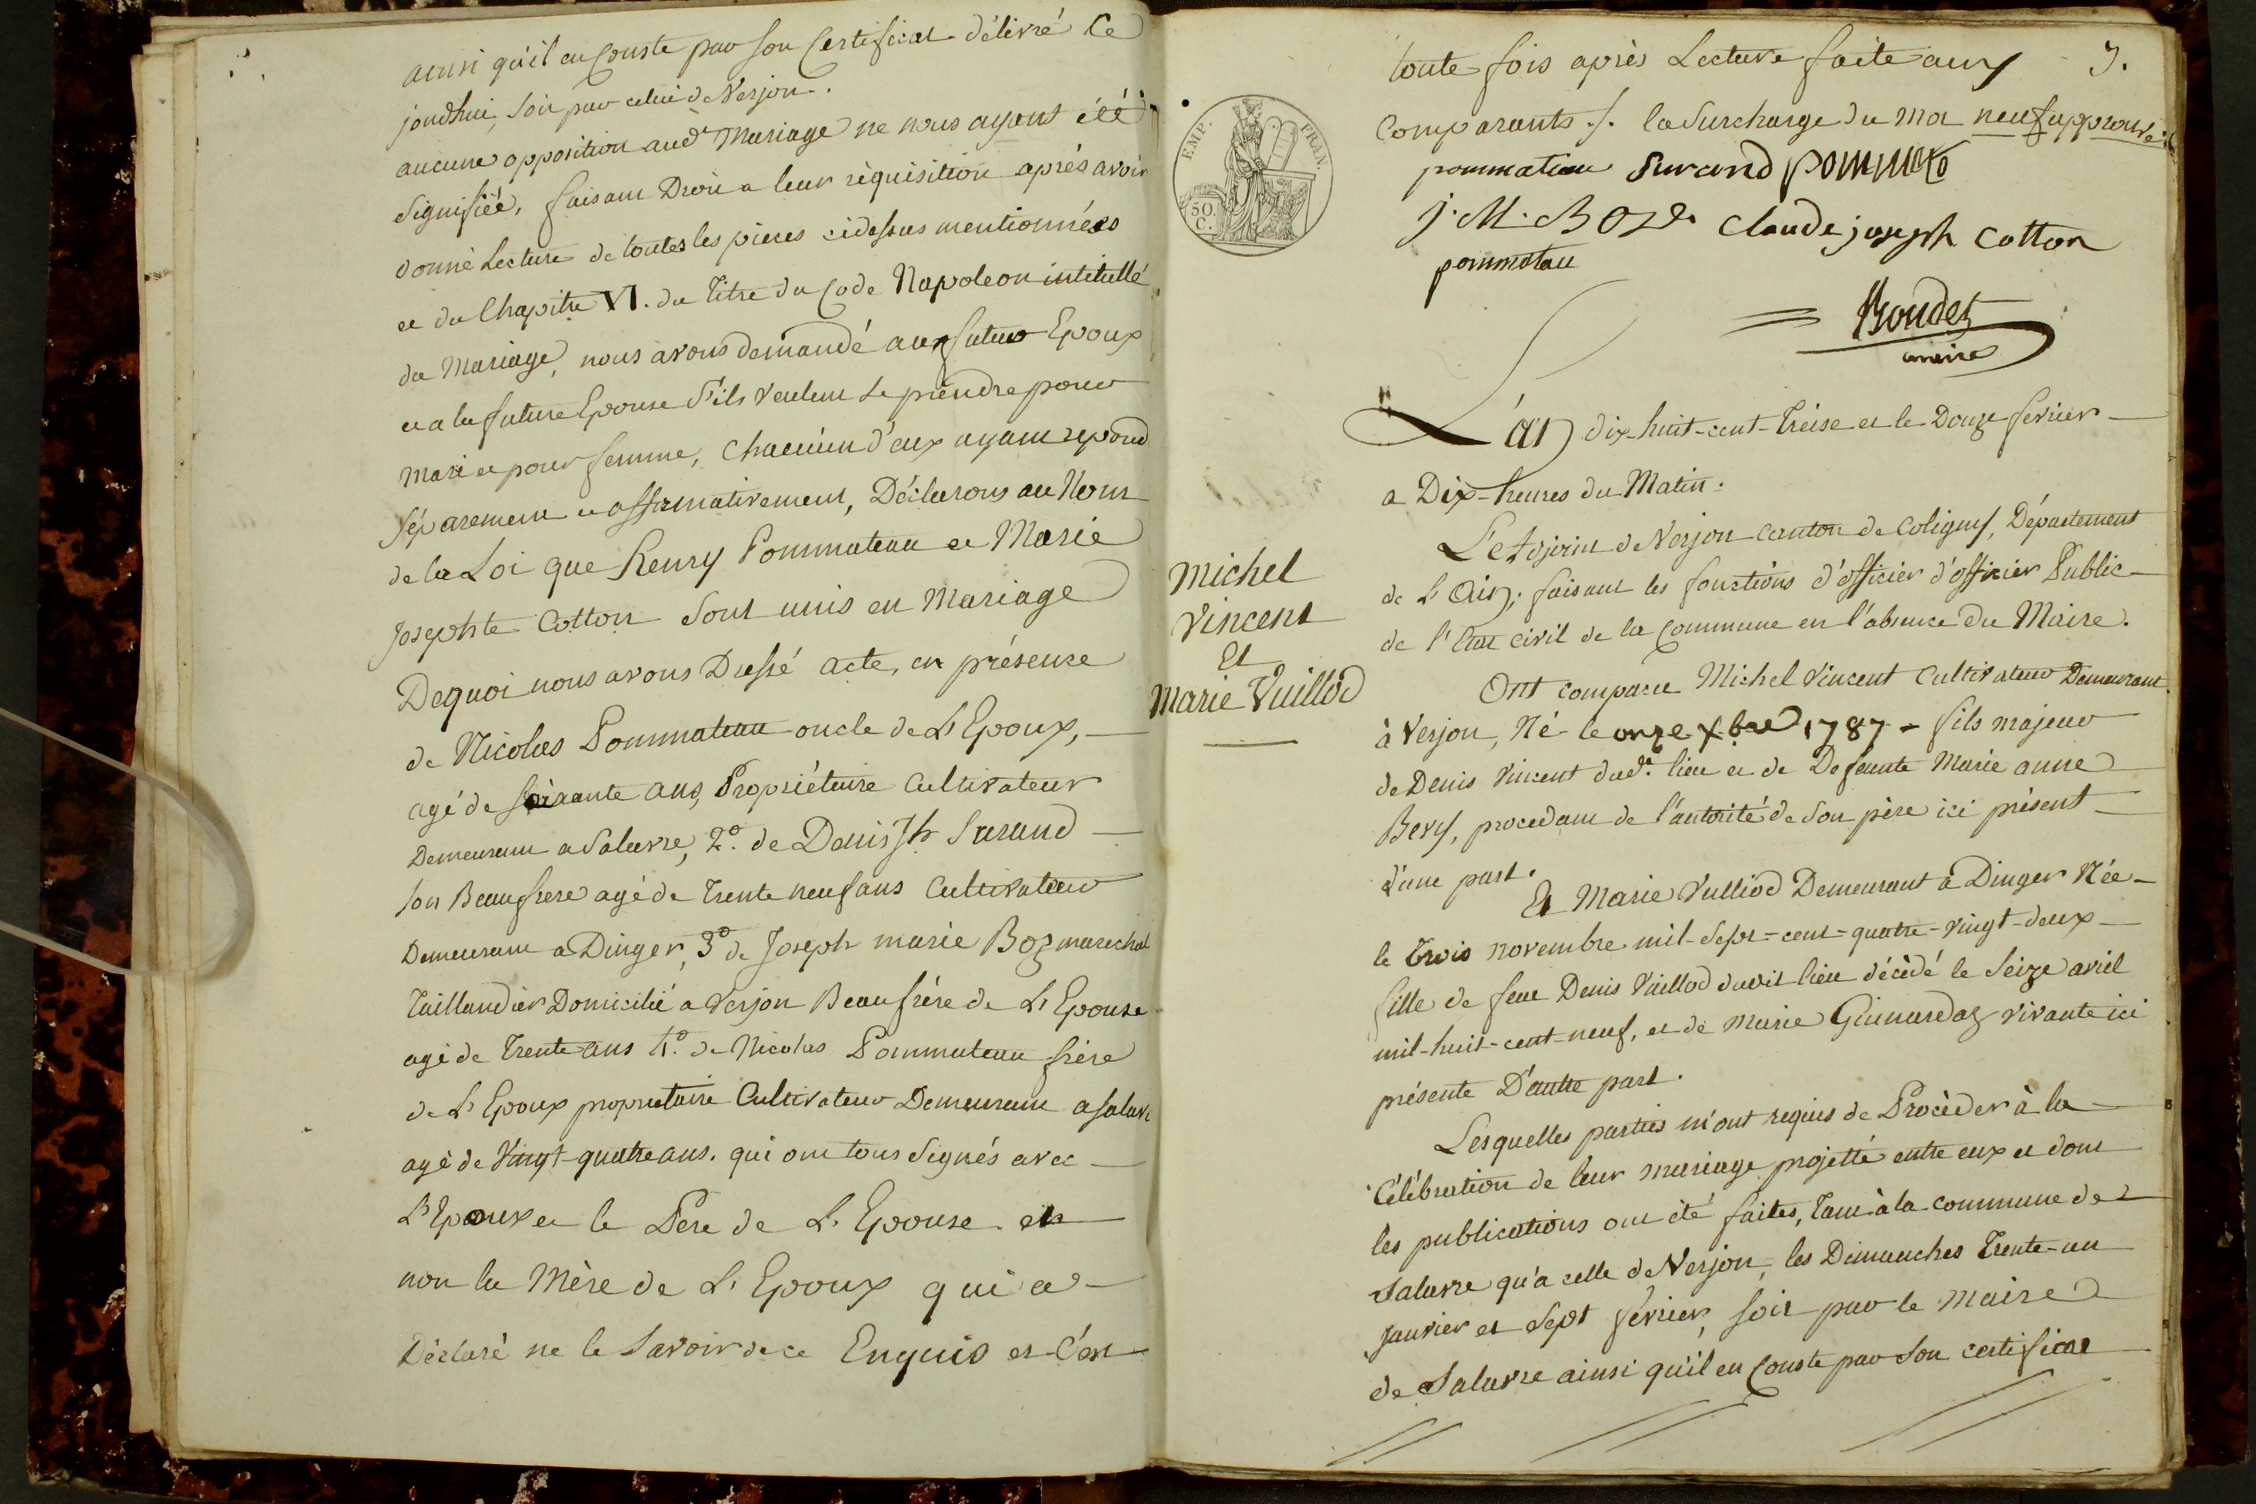 ainsi qu'il en Conste par son Certificat délivré Ce
jourdhui, soit par celui de Verjon.
aucune opposition aud.t Mariage ne nous ayant été
Signifiée, faisant Droit a leur réquisition après avoir
donné Lecture de toutes les pieces cidessus mentionnées
et du Chapitre VI. du Titre du Code Napoleon intitullé
du Mariage, nous avons demandé aux futur Epoux
et a la future Epouse S'ils veulent se prendre pour
Mari et pour femme, Chacun d'eux ayant repond
séparement et affirmativement, Déclarons au Nom
de la Loi que Henry Pommateau et Marie
Josephte Cotton sont unis en Mariage
De quoi nous avons Dressé acte, en présence
de Nicolas Pommateau oncle de L'Epoux,
agé de soixante ans, Propriétaire Cultivateur
Demeurant a Salavre, 2.o de Denis Jh Surand
son Beaufrere agé de Trente neuf ans Cultivateur
Demeurant a Dinger, 3.o de Joseph marie Boz marechal
Taillandier Domicilié a Verjon Beaufrére de L'Epouse
agé de Trente ans 4.o de Nicolas Pommateau frère
de L'Epoux proprietaire Cultivateur Demeurant a Salavre
agé de Vingt-quatre ans. qui ont tous Signés avec
L'Epoux et le Pere de L'Epouse et
non la Mère de L'Epoux qui a
Déclaré ne le Savoir de ce Enquis et C'est
toute fois après Lecture faite aux
3.
Comparants ./. la Surcharge du mot neuf approuvé
EMP. FRAN.
50. C.
pommateau Surand pommat
J. M. Boz Claude joseph Cotton
pommatau
Boudet
maire
L'an dix-huit-cent-Treise et le Douze fevrier
a Dix-heures du Matin.
L'Adjoint de Verjon canton de Coligny, Département
de L'Ain; faisant les fonctions d'officier d'officier Public
de l'Etat civil de la Commune en l'absence du Maire.
Michel
Vincent
Et
Marie Vuillod
Ont comparu Michel Vincent Cultivateur Demeurant
à Verjon, Né le onze Xbre 1787 - fils majeur
de Denis Vincent dud.t lieu et de Defeunte Marie anne
Bery, procedant de l'autorité de Son père ici présent
d'une part.
Et Marie Vulliod Demeurant a Dinger Née
le Trois novembre mil-Sept-cent-quatre-vingt-deux
fille de feue Denis Vuillod dudit lieu décèdé le Seize avril
mil-huit-cent-neuf, et de Marie Guinardaz vivante ici
présente D'autre part.
Lesquelles parties m'ont requis de Procèder à la
Célébration de leur mariage projetté entre eux et dont
les publications ont été faites, Tant à la commune de
Salavre qu'a celle de Verjon, les Dimanches Trente-un
Janvier et Sept fevrier, soit par le Maire
de Salavre ainsi qu'il en Conste par son certificat